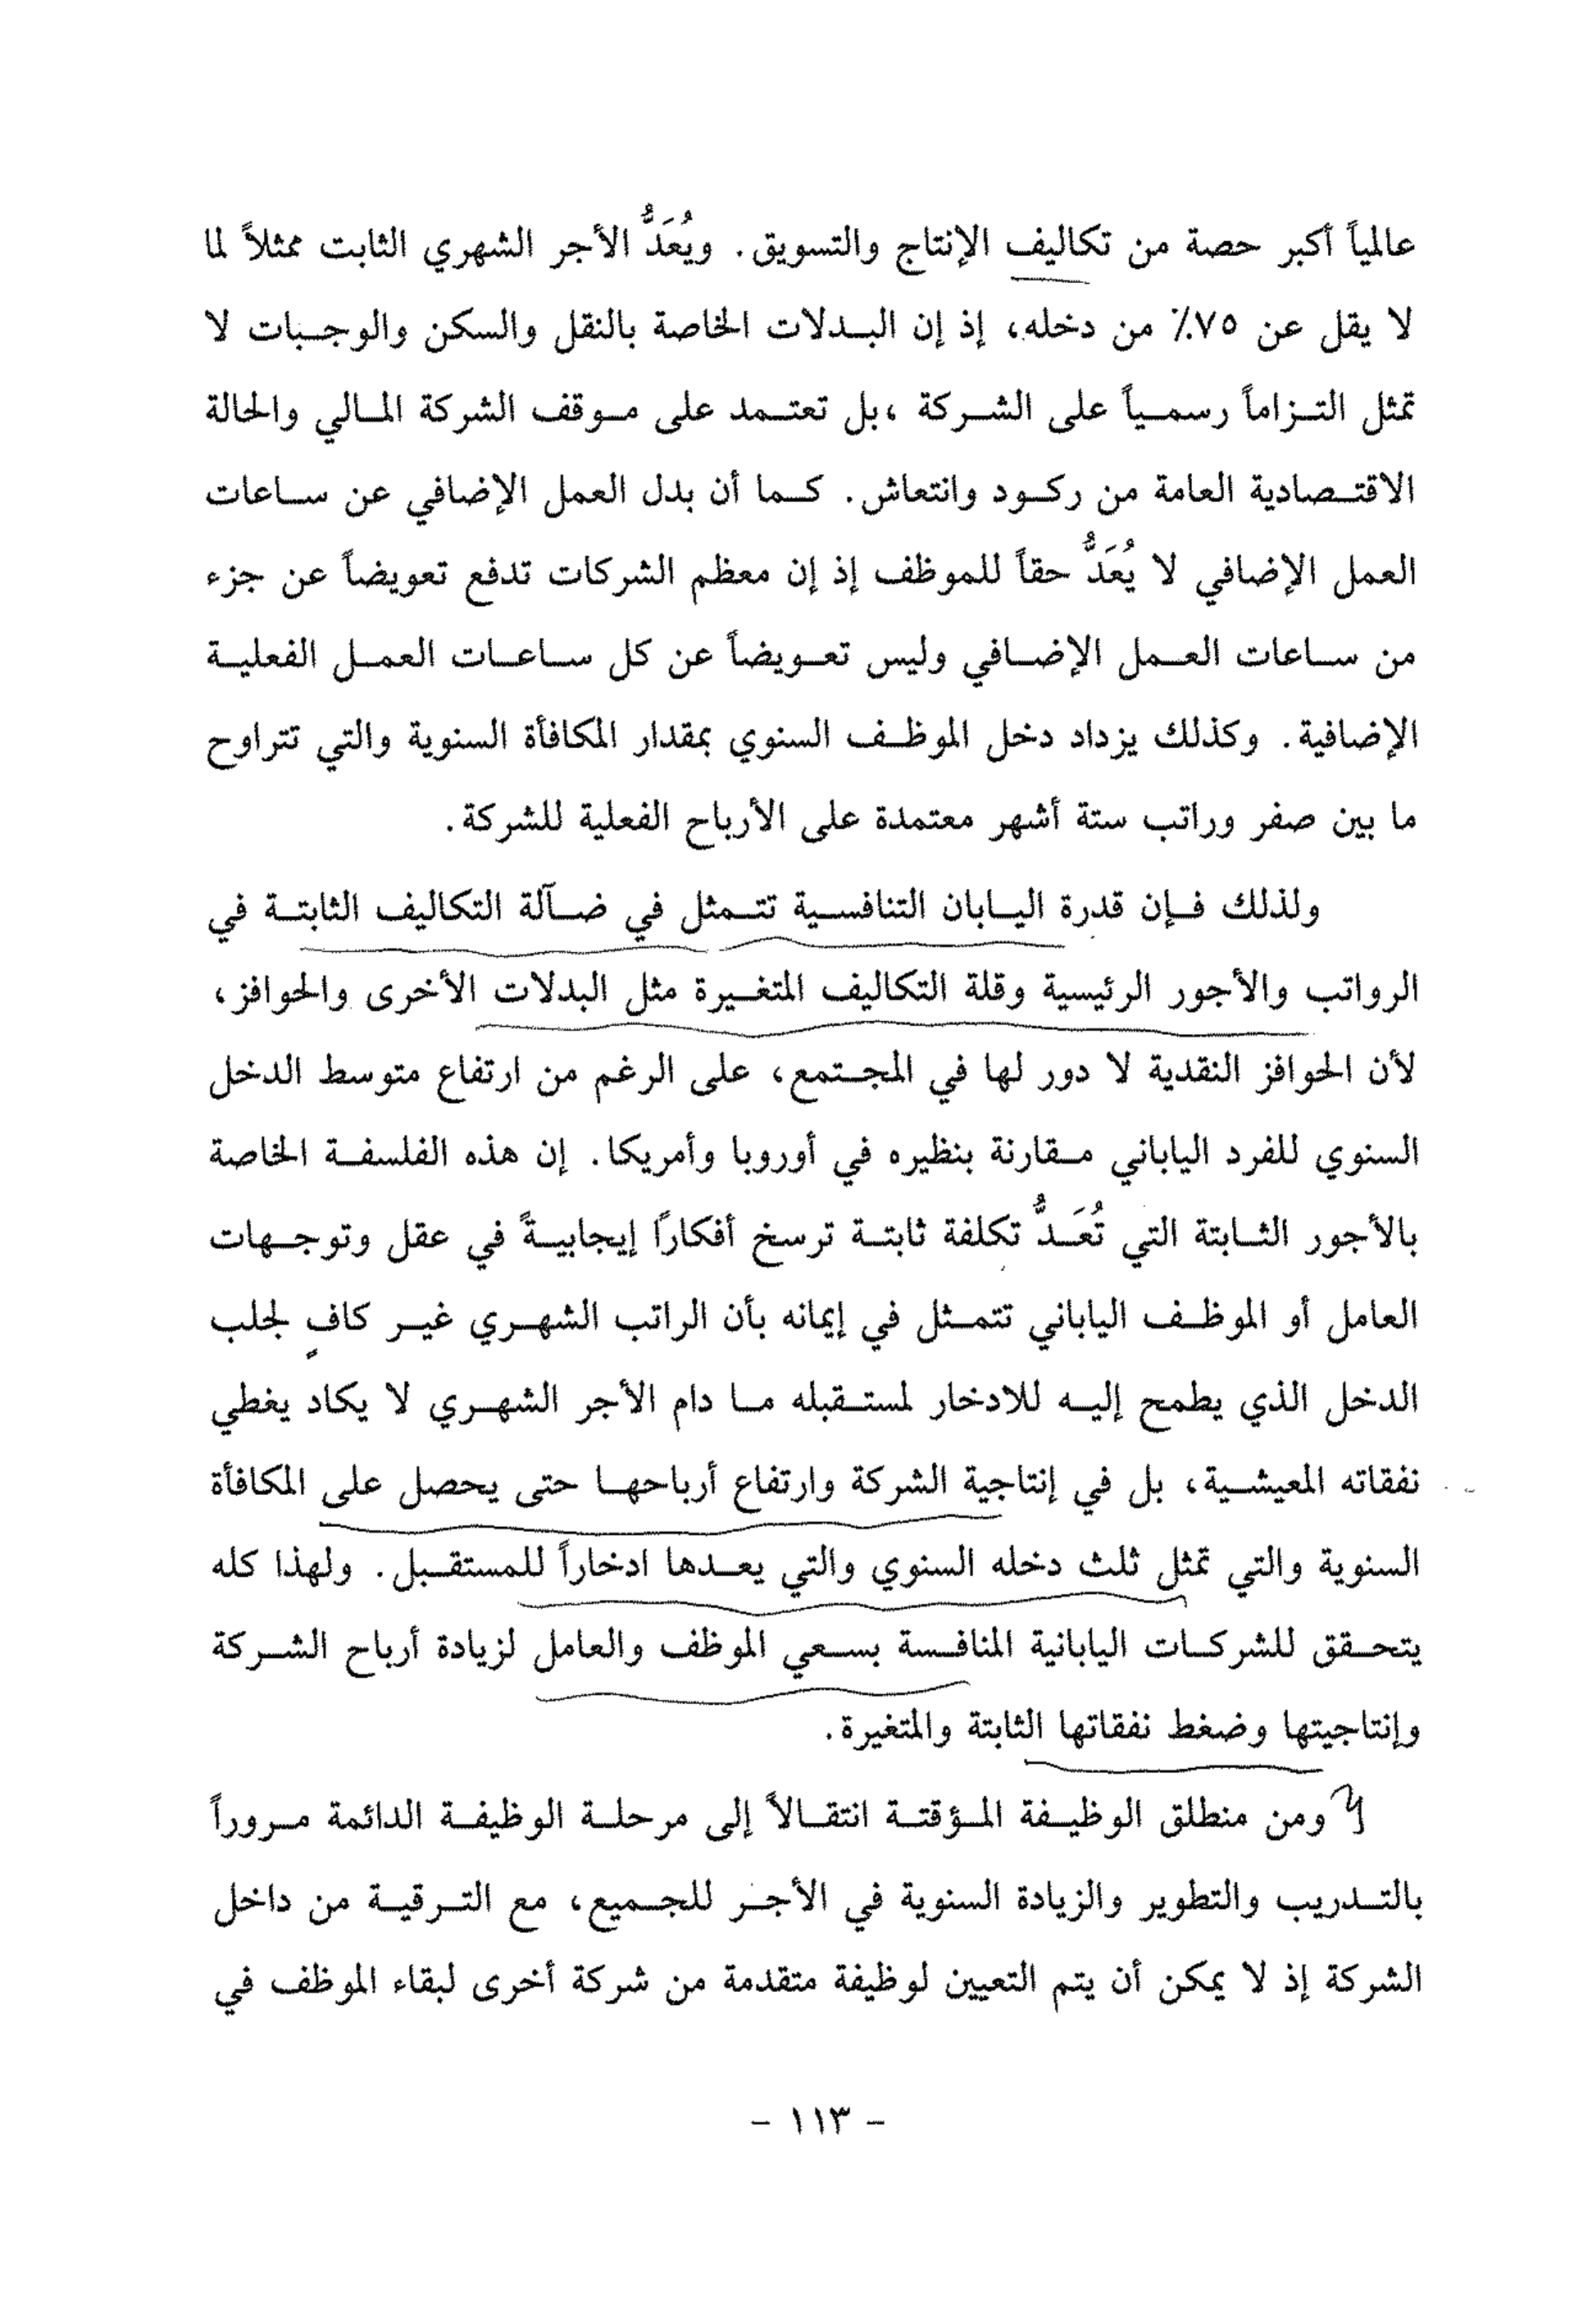 عالمياً أكبر حصة من تكاليف الإنتاج والتسويق. ويُعَدُّ الأجر الشهري الثابت ممثلاً لما
لا يقل عن ٧٥٪ من دخله، إذ إن البدلات الخاصة بالنقل والسكن والوجبات لا
تمثل التزاماً رسمياً على الشركة ،بل تعتمد على موقف الشركة المالي والحالة
الاقتصادية العامة من ركود وانتعاش. كما أن بدل العمل الإضافي عن ساعات
العمل الإضافي لا يُعَدُّ حقاً للموظف إذ إن معظم الشركات تدفع تعويضاً عن جزء
من ساعات العمل الإضافي وليس تعويضاً عن كل ساعات العمل الفعلية
الإضافية. وكذلك يزداد دخل الموظف السنوي بمقدار المكافأة السنوية والتي تتراوح
ما بين صفر وراتب ستة أشهر معتمدة على الأرباح الفعلية للشركة.
ولذلك فإن قدرة اليابان التنافسية تتمثل في ضآلة التكاليف الثابتة في
الرواتب والأجور الرئيسية وقلة التكاليف المتغيرة مثل البدلات الأخرى والحوافز،
لأن الحوافز النقدية لا دور لها في المجتمع، على الرغم من ارتفاع متوسط الدخل
السنوي للفرد الياباني مقارنة بنظيره في أوروبا وأمريكا. إن هذه الفلسفة الخاصة
بالأجور الثابتة التي تُعَدُّ تكلفة ثابتة ترسخ أفكارًا إيجابيةً في عقل وتوجهات
العامل أو الموظف الياباني تتمثل في إيمانه بأن الراتب الشهري غير كافٍ لجلب
الدخل الذي يطمح إليه للادخار لمستقبله ما دام الأجر الشهري لا يكاد يغطي
نفقاته المعيشية، بل في إنتاجية الشركة وارتفاع أرباحها حتى يحصل على المكافأة
السنوية والتي تمثل ثلث دخله السنوي والتي يعدها ادخاراً للمستقبل. ولهذا كله
يتحقق للشركات اليابانية المنافسة بسعي الموظف والعامل لزيادة أرباح الشركة
وإنتاجيتها وضغط نفقاتها الثابتة والمتغيرة.
ومن منطلق الوظيفة المؤقتة انتقالاً إلى مرحلة الوظيفة الدائمة مروراً
بالتدريب والتطوير والزيادة السنوية في الأجر للجميع، مع الترقية من داخل
الشركة إذ لا يمكن أن يتم التعيين لوظيفة متقدمة من شركة أخرى لبقاء الموظف في
- ١١٣ -